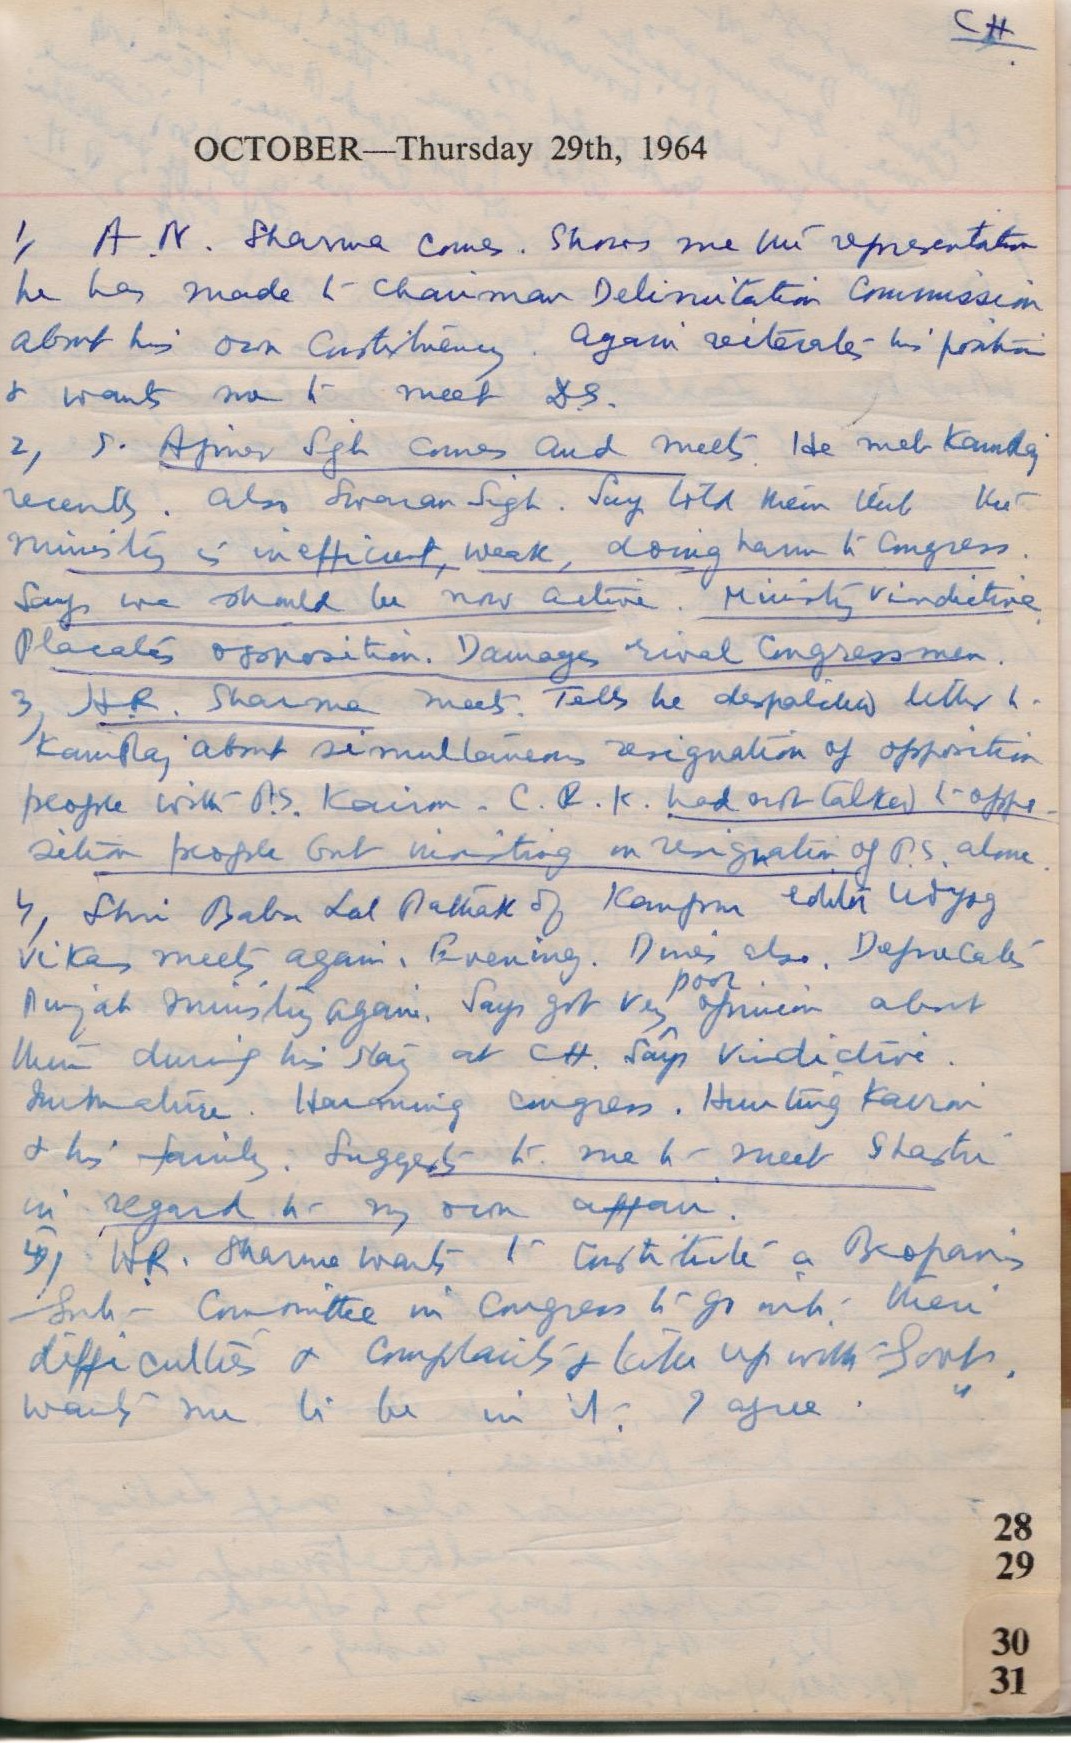 CH.
OCTOBER—Thursday 29th, 1964
1, A.N. Sharma comes. Shows me the representation
he has made to Chairman Delimitation Commission
about his own Constituency. Again reiterates his position
& wants me to meet D.S.
2, S. Ajmer Sigh comes and meets. He met Kamraj
recently. Also Swaran Sigh. Says told them that the
ministry is inefficient, weak, doing harm to Congress.
Says we should be now active. Ministry vindictive.
Placates opposition. Damages rival Congressmen.
3, H.R. Sharma meets. Tells he despatched letter to
KamRaj about simultaneous resignation of opposition
people with P.S. Kairon. C.R.K. had not talked to oppo-
sition people but insisting on resignation of P.S. alone.
4, Shri Babu Lal Pathak of Kanpur editor Udyog
Vikas meets again. Evening. Dines also. Deprecates
Punjab ministry again. Says got very poor opinion about
them during his stay at CH. Says vindictive.
Immature. Harming congress. Hunting Kairon
& his family. Suggests to me to meet Shastri
in regard to my own affair.
5, H.R. Sharma wants to Constitute a Beoparis
Sub-Committee in Congress to go into their
difficulties & complaints & take up with Govt.
wants me to be in it. I agree.
28
29
30
31